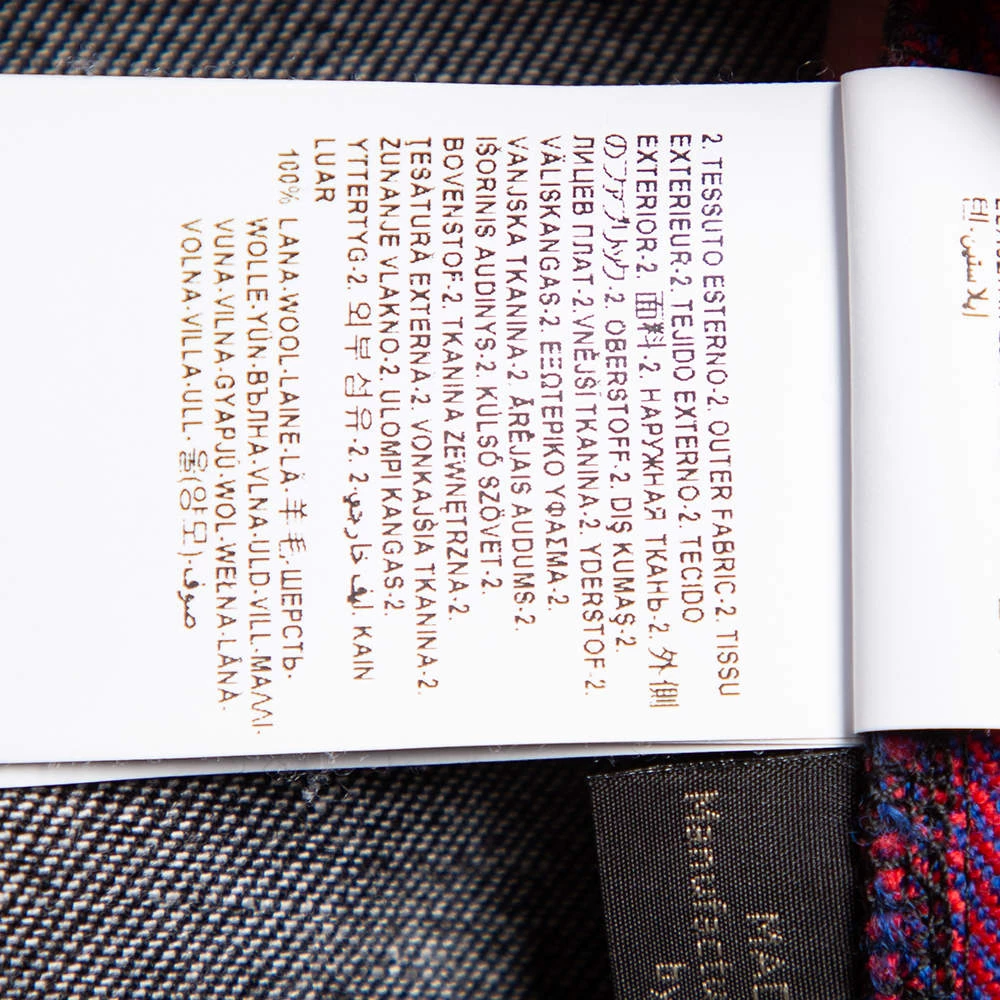 2. TESSUTO ESTERNO·2. OUTER FABRIC·2. TISSU
EXTERIEUR·2. TEJIDO EXTERNO·2. TECIDO
EXTERIOR·2. 面料·2. НАРУЖНАЯ ТКАНЬ·2. 外側
のファブリック·2. OBERSTOFF·2. DIŞ KUMAŞ·2.
ЛИЦЕВ ПЛАТ·2.VNĚJŠÍ TKANINA·2. YDERSTOF·2.
VÄLISKANGAS·2. ΕΞΩΤΕΡΙΚΟ ΥΦΑΣΜΑ·2.
VANJSKA TKANINA·2. ĀRĒJAIS AUDUMS·2.
IŠORINIS AUDINYS·2. KÜLSŐ SZÖVET·2.
BOVENSTOF·2. TKANINA ZEWNĘTRZNA·2.
ŢESĂTURĂ EXTERNA·2. VONKAJŠIA TKANINA·2.
ZUNANJE VLAKNO·2. ULOMPI KANGAS·2.
YTTERTYG·2. 외부 섬유·2. 2.ليف خارجي. KAIN
LUAR
100% LANA·WOOL·LAINE·LÃ·羊毛·ШЕРСТЬ·
WOLLE·YÜN·ВЪЛНА·VLNA·ULD·VILL·ΜΑΛΛΙ·
VUNA·VILNA·GYAPJÚ·WOL·WEŁNA·LÂNĂ·
VOLNA·VILLA·ULL·울(양모)·صوف·
Manufactu